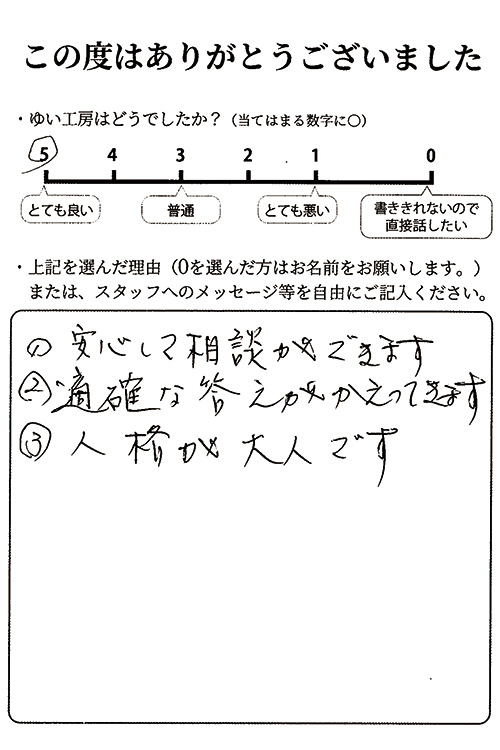 この度はありがとうございました
・ゆい工房はどうでしたか？（当てはまる数字に○）
5 4 3 2 1 0
とても良い 普通 とても悪い 書ききれないので直接話したい
・上記を選んだ理由（0を選んだ方はお名前をお願いします。）
または、スタッフへのメッセージ等を自由にご記入ください。
① 安心して相談ができます
② 適確な答えがかえってきます
③ 人格が大人です